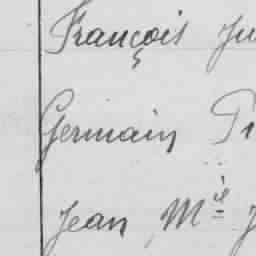 François Ju
Germain Pi
Jean Mel J